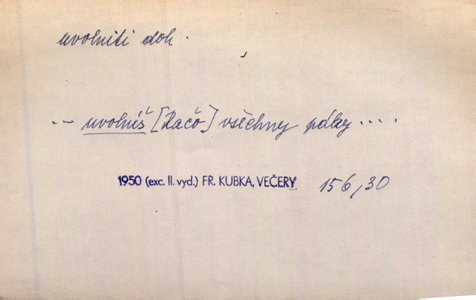 uvolniti dok.
-- uvolníš [Kačo] všechny pásky....
1950 (exc. II. vyd.) FR. KUBKA, VEČERY 156,30